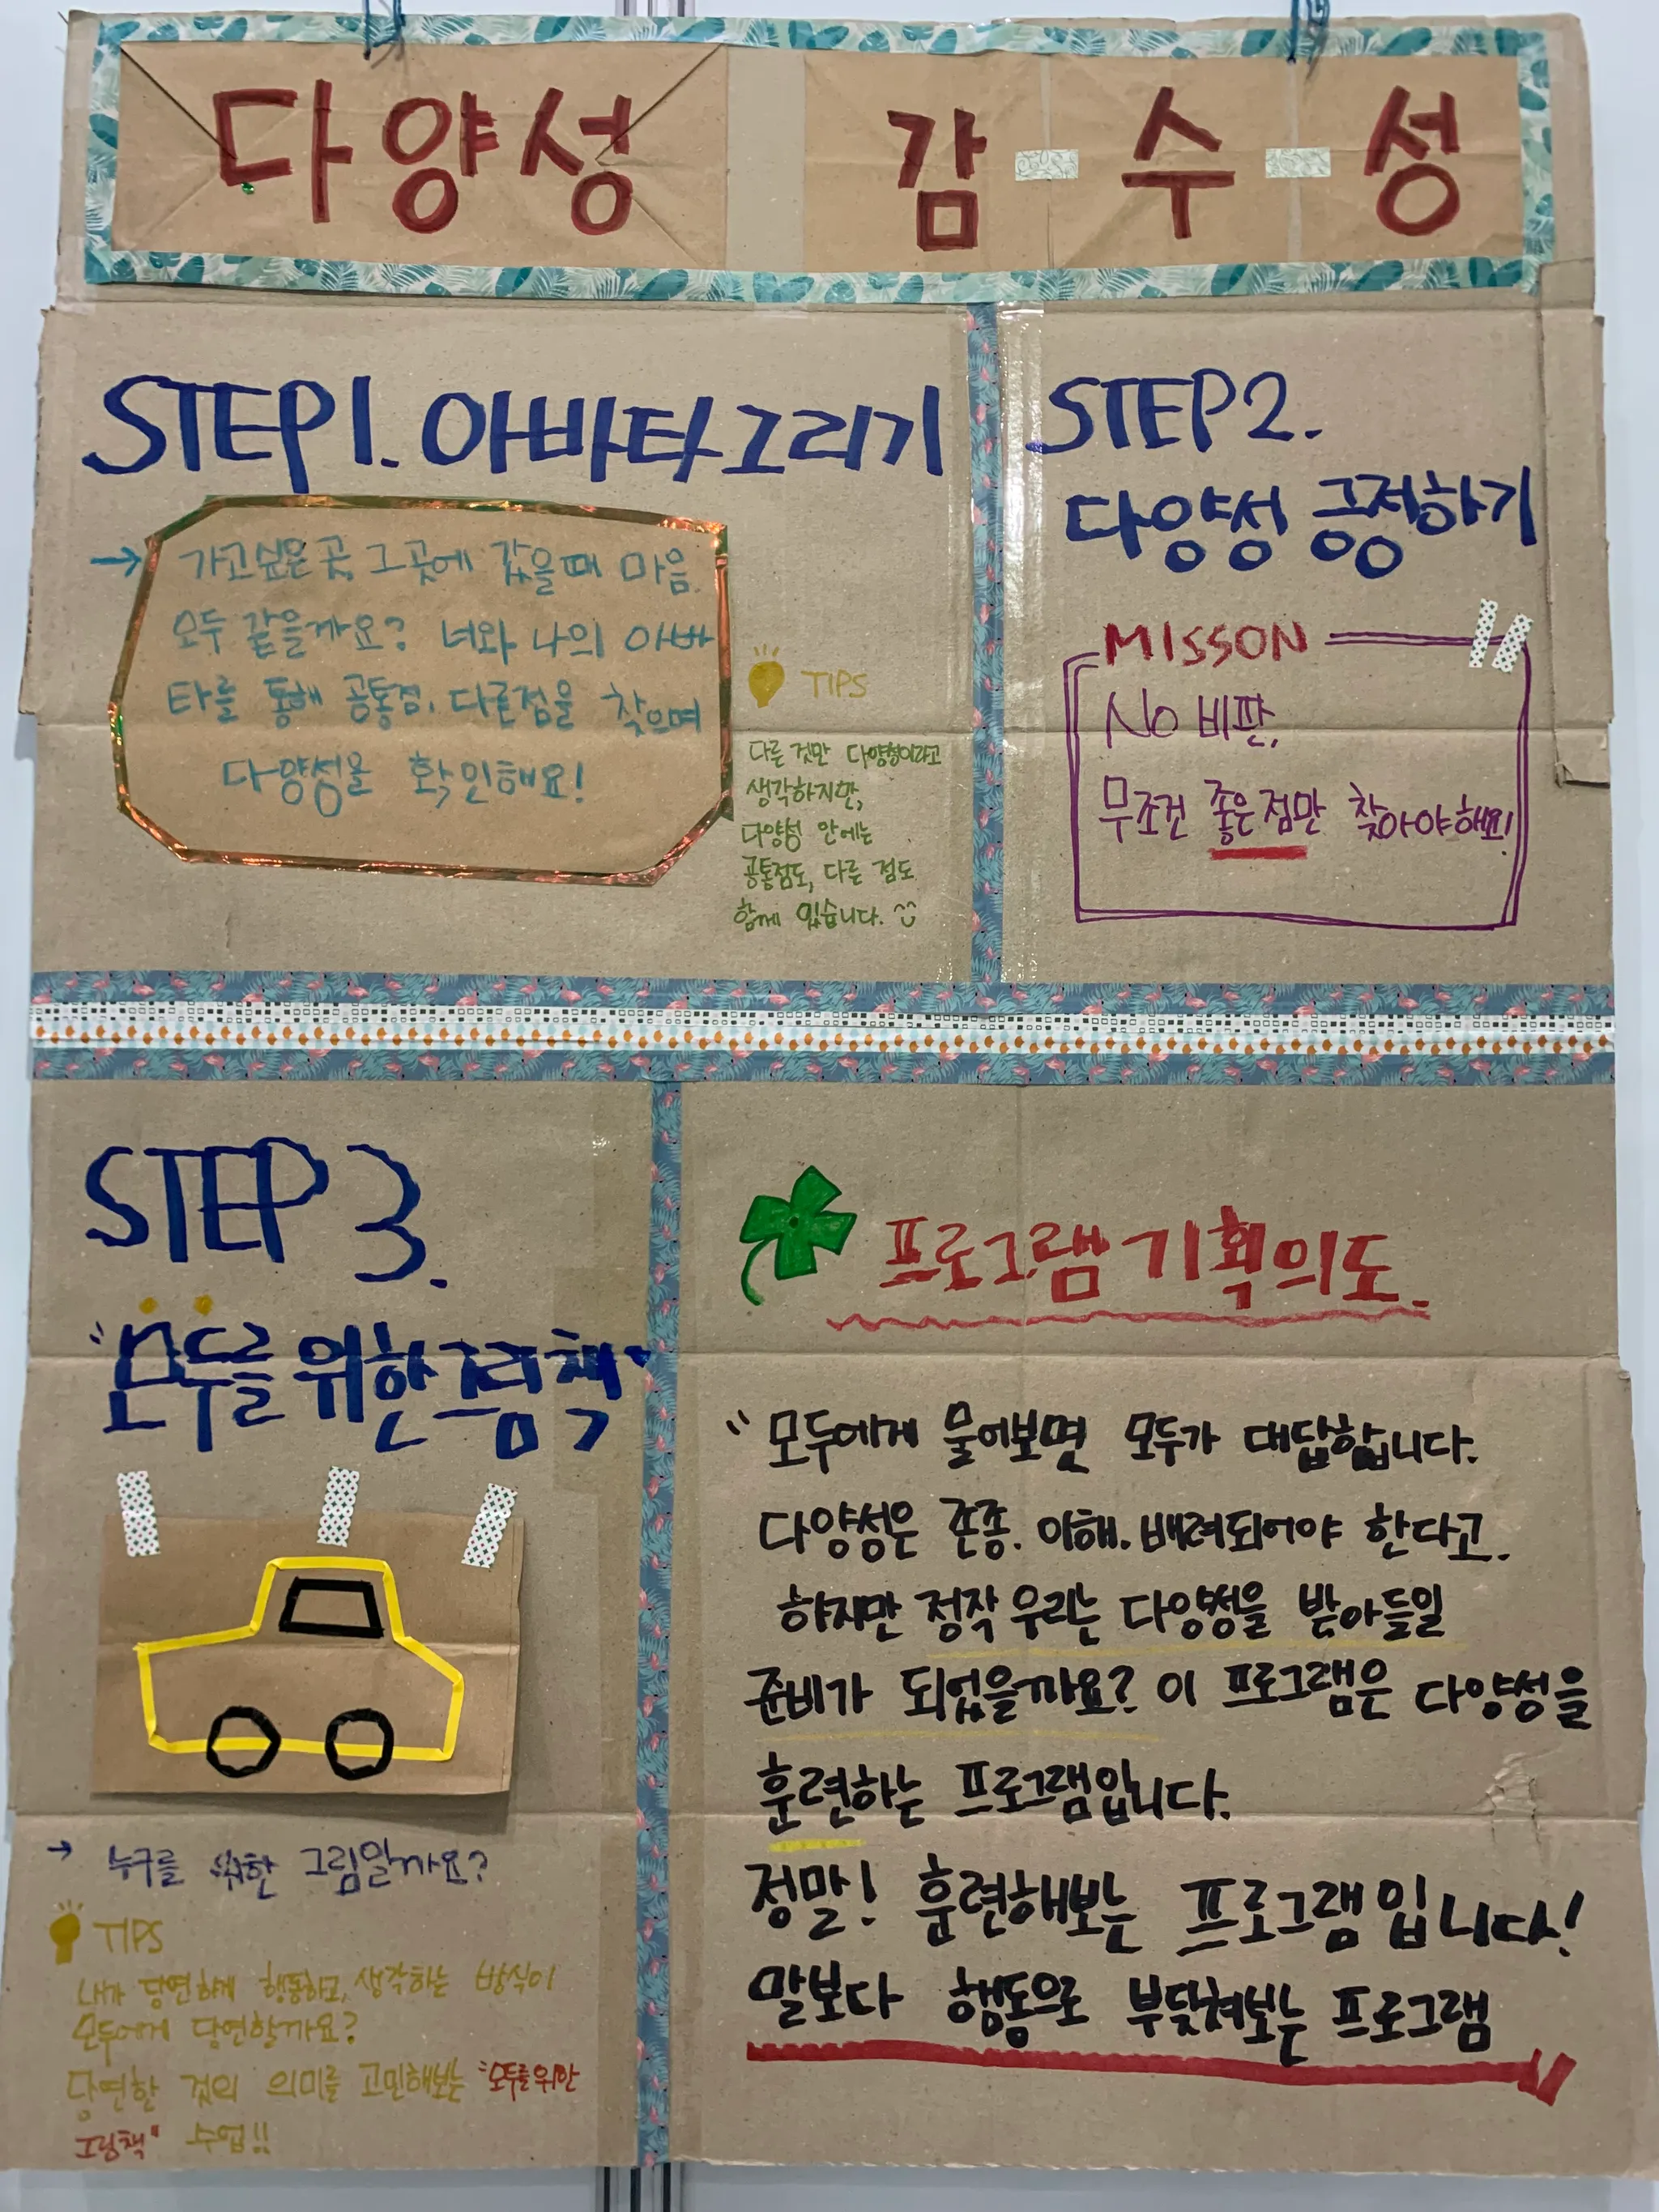 다양성 감-수-성
STEP1. 아바타그리기
→ 가고싶은곳, 그곳에 갔을때 마음.
모두 같을까요? 너와 나의 아바
타를 통해 공통점, 다른점을 찾으며
다양성을 확인해요!
TIPS
다른 것만 다양성이라고
생각하지만,
다양성 안에는
공통점도, 다른 점도
함께 있습니다.
STEP2.
다양성 긍정하기
MISSON
No 비판,
무조건 좋은점만 찾아야해요!
STEP 3.
"모두를 위한 그림책"
→ 누구를 위한 그림일까요?
TIPS
내가 당연하게 행동하고, 생각하는 방식이
모두에게 당연할까요?
당연한 것의 의미를 고민해보는 "모두를위한
그림책" 수업!!
프로그램 기획의도.
"모두에게 물어보면 모두가 대답합니다.
다양성은 존중. 이해. 배려되어야 한다고.
하지만 정작 우리는 다양성을 받아들일
준비가 되었을까요? 이 프로그램은 다양성을
훈련하는 프로그램입니다.
정말! 훈련해보는 프로그램입니다!
말보다 행동으로 부딪쳐보는 프로그램"